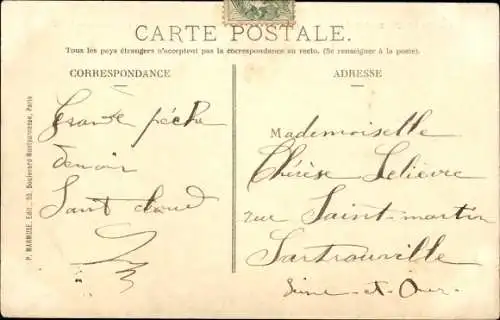 CARTE POSTALE.
Tous les pays étrangers n'acceptent pas la correspondance au recto. (Se renseigner à la poste).
CORRESPONDANCE
ADRESSE
Grande pêche
Saint Cloud
Mademoiselle
Thérèse Lelièvre
rue Saint-martin
Sartrouville
Seine-et-Oise.
P. MARMUSE, Edit., 50, Boulevard Montparnasse, Paris